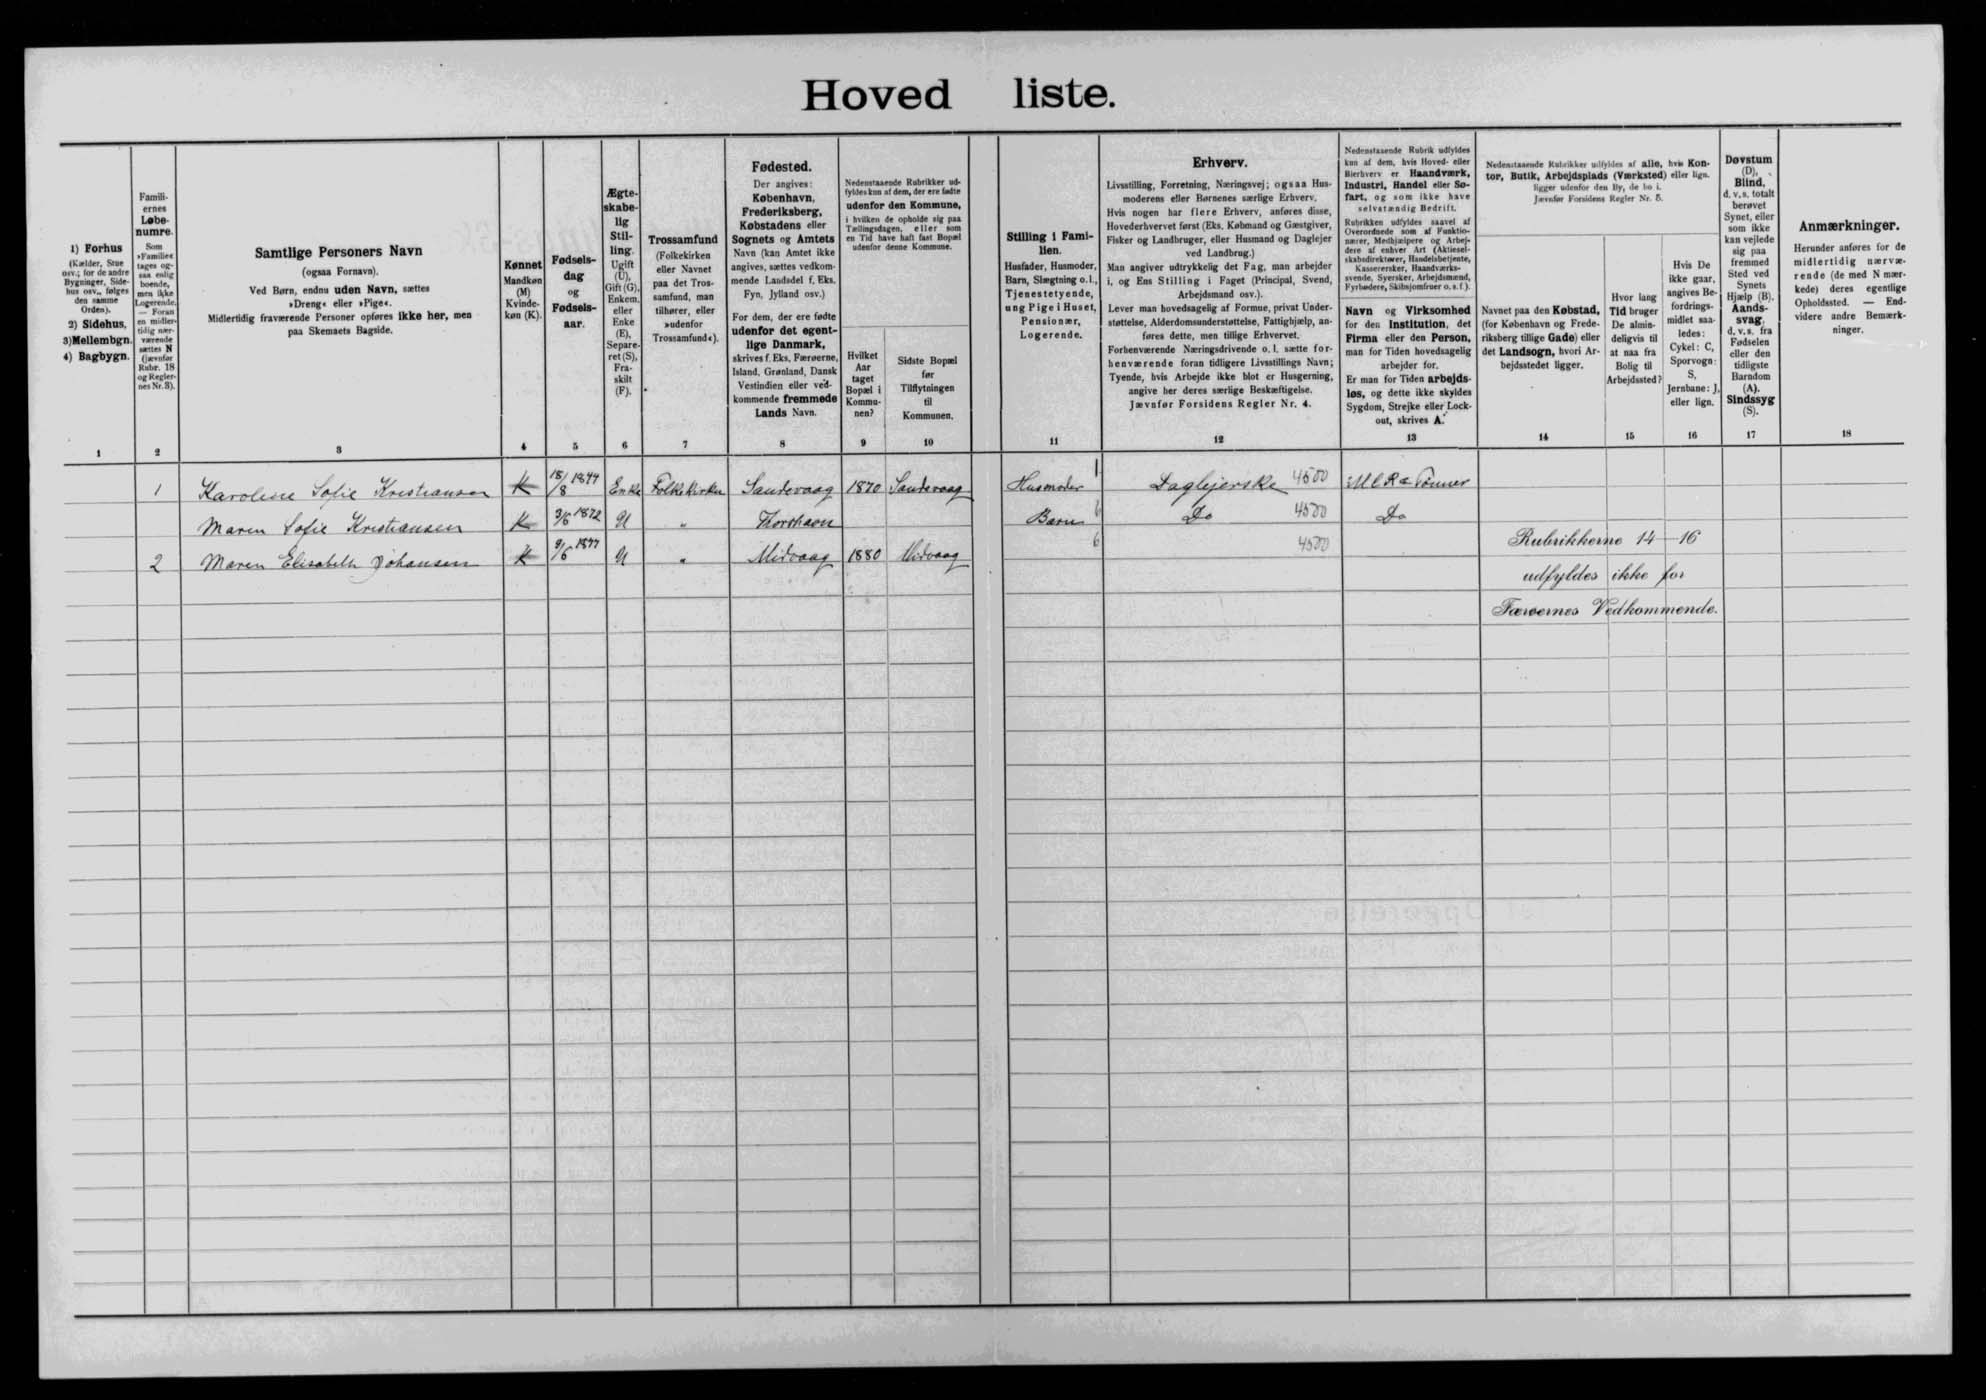 Hoved liste.
1) Forhus
(Kælder, Stue
osv.; for de andre
Bygninger, Side-
hus osv., følges
den samme
Orden).
2) Sidehus,
3) Mellembgn.
4) Bagbygn.
Famili-
ernes
Løbe-
numre.
Som
»Familie«
tages og-
saa enlig
boende,
men ikke
Logerende.
— Foran
en midler-
tidig nær-
værende
sættes N
(jævnfør
Rubr. 18
og Regler-
nes Nr. 3).
Samtlige Personers Navn
(ogsaa Fornavn).
Ved Børn, endnu uden Navn, sættes
»Dreng« eller »Pige«.
Midlertidig fraværende Personer opføres ikke her, men
paa Skemaets Bagside.
Kønnet
Mandkøn
(M)
Kvinde-
køn (K).
Fødsels-
dag
og
Fødsels-
aar.
Ægte-
skabe-
lig
Stil-
ling.
Ugift
(U),
Gift (G),
Enkem.
eller
Enke
(E),
Separe-
ret (S),
Fra-
skilt
(F).
Trossamfund
(Folkekirken
eller Navnet
paa det Tros-
samfund, man
tilhører, eller
»udenfor
Trossamfund«).
Fødested.
Der angives:
København,
Frederiksberg,
Købstadens eller
Sognets og Amtets
Navn (kan Amtet ikke
angives, sættes vedkom-
mende Landsdel f. Eks.
Fyn, Jylland osv.)
For dem, der ere fødte
udenfor det egent-
lige Danmark,
skrives f. Eks. Færøerne,
Island, Grønland, Dansk
Vestindien eller ved-
kommende fremmede
Lands Navn.
Nedenstaaende Rubrikker ud-
fyldes kun af dem, der ere fødte
udenfor den Kommune,
i hvilken de opholde sig paa
Tællingsdagen, eller som
en Tid have haft fast Bopæl
udenfor denne Kommune.
Hvilket
Aar
taget
Bopæl i
Kommu-
nen?
Sidste Bopæl
før
Tilflytningen
til
Kommunen.
Stilling i Fami-
lien.
Husfader, Husmoder,
Barn, Slægtning o. l.,
Tjenestetyende,
ung Pige i Huset,
Pensionær,
Logerende.
Erhverv.
Livsstilling, Forretning, Næringsvej; ogsaa Hus-
moderens eller Børnenes særlige Erhverv.
Hvis nogen har flere Erhverv, anføres disse,
Hovederhvervet først (Eks. Købmand og Gæstgiver,
Fisker og Landbruger, eller Husmand og Daglejer
ved Landbrug.)
Man angiver udtrykkelig det Fag, man arbejder
i, og Ens Stilling i Faget (Principal, Svend,
Arbejdsmand osv.).
Lever man hovedsagelig af Formue, privat Under-
støttelse, Alderdomsunderstøttelse, Fattighjælp, an-
føres dette, men tillige Erhvervet.
Forhenværende Næringsdrivende o. l. sætte for-
henværende foran tidligere Livsstillings Navn;
Tyende, hvis Arbejde ikke blot er Husgerning,
angive her deres særlige Beskæftigelse.
Jævnfør Forsidens Regler Nr. 4.
Nedenstaaende Rubrik udfyldes
kun af dem, hvis Hoved- eller
Bierhverv er Haandværk,
Industri, Handel eller Sø-
fart, og som ikke have
selvstændig Bedrift.
Rubrikken udfyldes saavel af
Overordnede som af Funktio-
nærer, Medhjælpere og Arbej-
dere af enhver Art (Aktiesel-
skabsdirektører, Handelsbetjente,
Kasserersker, Haandværks-
svende, Syersker, Arbejdsmænd,
Fyrbødere, Skibsjomfruer o. s. f.).
Navn og Virksomhed
for den Institution, det
Firma eller den Person,
man for Tiden hovedsagelig
arbejder for.
Er man for Tiden arbejds-
løs, og dette ikke skyldes
Sygdom, Strejke eller Lock-
out, skrives A.
Nedenstaaende Rubrikker udfyldes af alle, hvis Kon-
tor, Butik, Arbejdsplads (Værksted) eller lign.
ligger udenfor den By, de bo i.
Jævnfør Forsidens Regler Nr. 5.
Navnet paa den Købstad,
(for København og Frede-
riksberg tillige Gade) eller
det Landsogn, hvori Ar-
bejdsstedet ligger.
Hvor lang
Tid bruger
De almin-
deligvis til
at naa fra
Bolig til
Arbejdssted?
Hvis De
ikke gaar,
angives Be-
fordrings-
midlet saa-
ledes:
Cykel: C,
Sporvogn:
S,
Jernbane: J,
eller lign.
Døvstum
(D),
Blind,
d. v. s. totalt
berøvet
Synet, eller
som ikke
kan vejlede
sig paa
fremmed
Sted ved
Synets
Hjælp (B).
Aands-
svag,
d. v. s. fra
Fødselen
eller den
tidligste
Barndom
(A).
Sindssyg
(S).
Anmærkninger.
Herunder anføres for de
midlertidig nærvæ-
rende (de med N mær-
kede) deres egentlige
Opholdssted. — End-
videre andre Bemærk-
ninger.
1 2 3 4 5 6 7 8 9 10 11 12 13 14 15 16 17 18
1 Karoline Sofie Kristiansen K 18/8 1844 Enke Folkekirken Sandevaag 1870 Sandevaag Husmoder 1 Daglejerske 4500
Maren Sofie Kristiansen K 1872 U " Thorshavn Barn 6 Do 4500 Do
2 Maren Elisabeth Johansen K 9/6 U " Midvaag 1880 Midvaag 6 4500
Rubrikkerne 14–16
udfyldes ikke for
Færøernes Vedkommende.